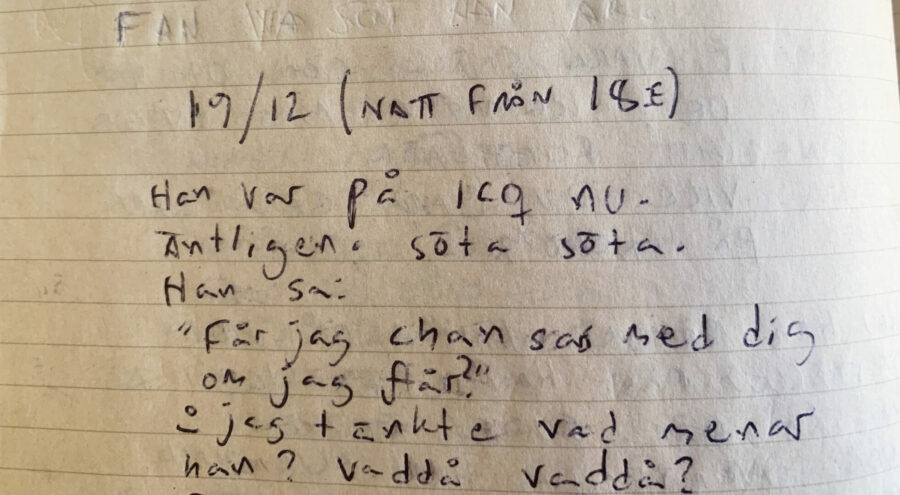 FAN VA SÖT HAN
19/12 (NATT FRÅN 18E)
Han var på ICQ nu.
Äntligen. söta söta.
Han sa:
"Får jag chan sas med dig
om jag får?"
å jag tänkte vad menar
han? vaddå vaddå?